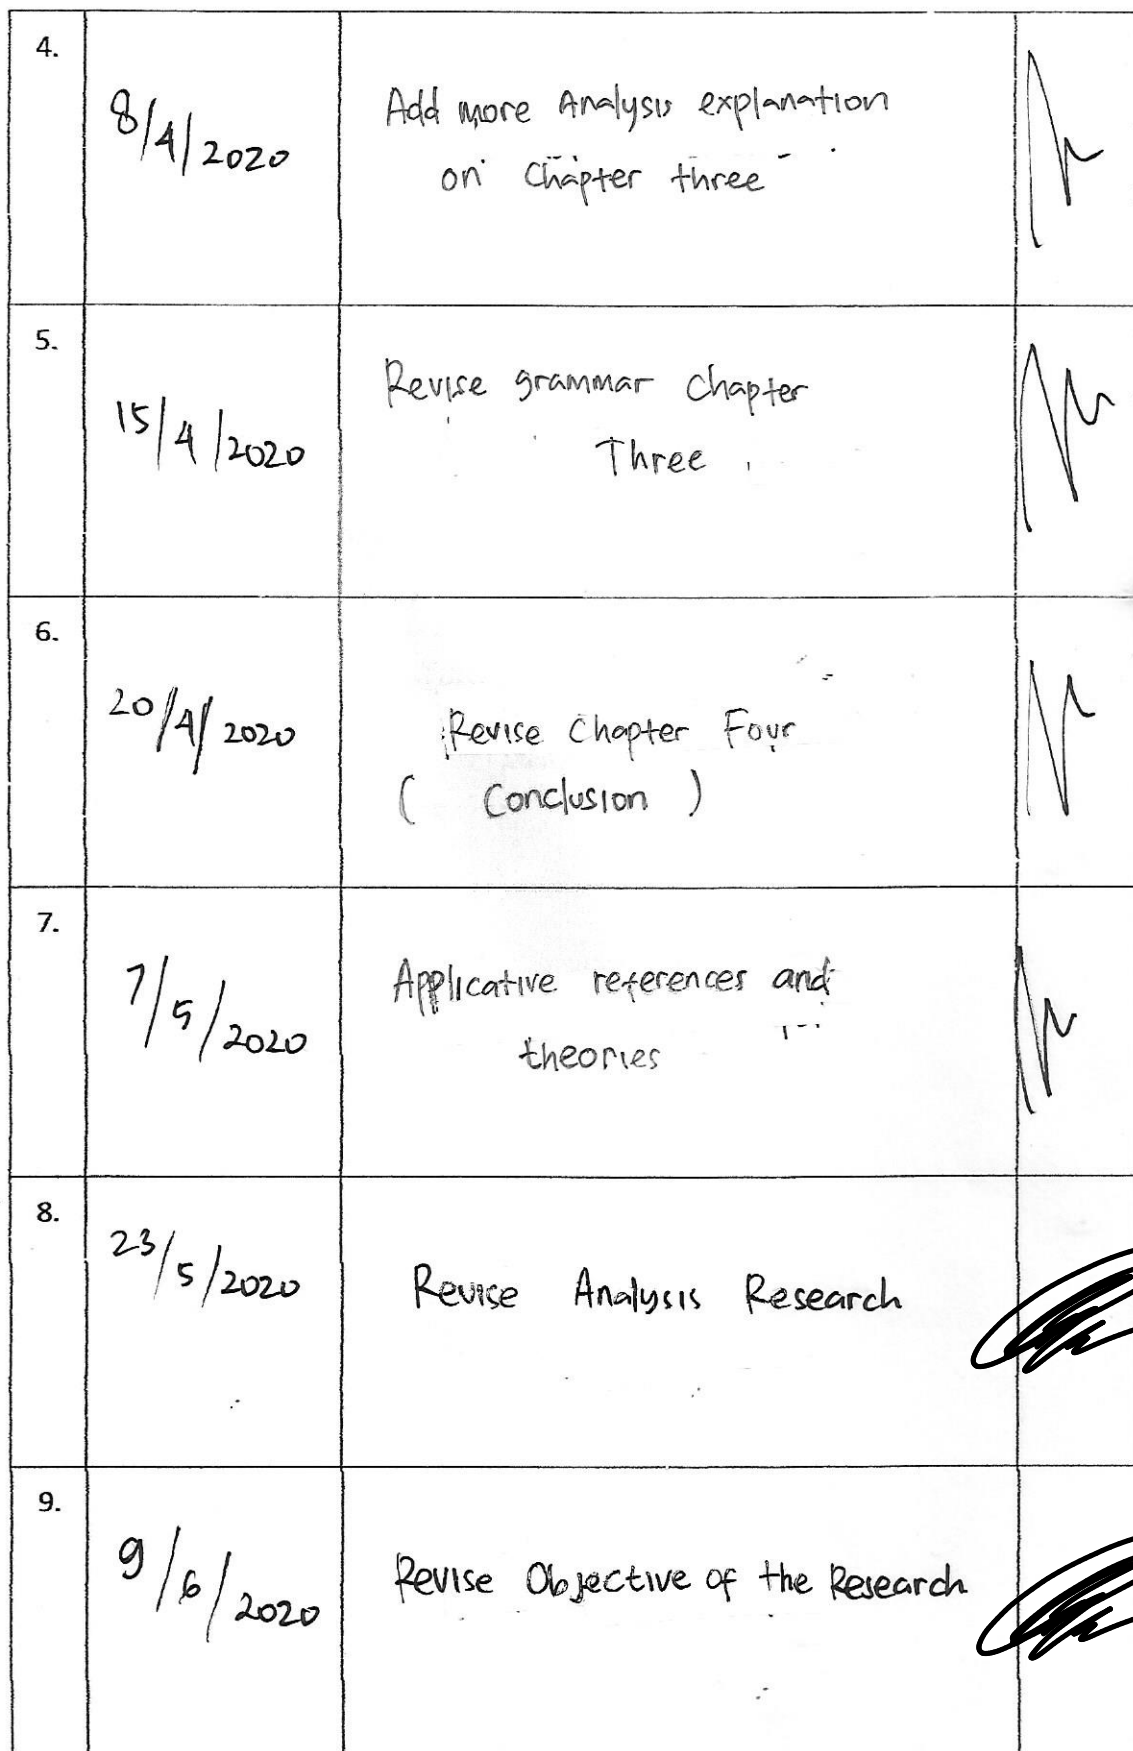 4.
8/4/2020
Add more Analysis explanation
on Chapter three
5.
15/4/2020
Revise grammar Chapter
Three
6.
20/4/2020
Revise Chapter Four
( Conclusion )
7.
7/5/2020
Applicative references and
theories
8.
23/5/2020
Revise Analysis Research
9.
9/6/2020
Revise Objective of the Research